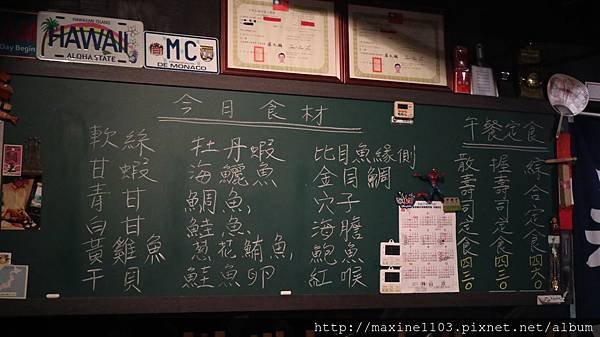 Day Begin
HAWAIIAN ISLANDS
HAWAII
ALOHA STATE
MC
DE MONACO
今日食材
軟絲
甘蝦
青甘
白甘
黃雞魚
干貝
牡丹蝦
海鱺魚
鯛魚
鮭魚
蔥花鮪魚
鮭魚卵
比目魚緣側
金目鯛
穴子
海膽
鮑魚
紅喉
午餐定食
綜合定食 四六〇
握壽司定食 四三〇
散壽司定食 四三〇
http://maxine1103.pixnet.net/album